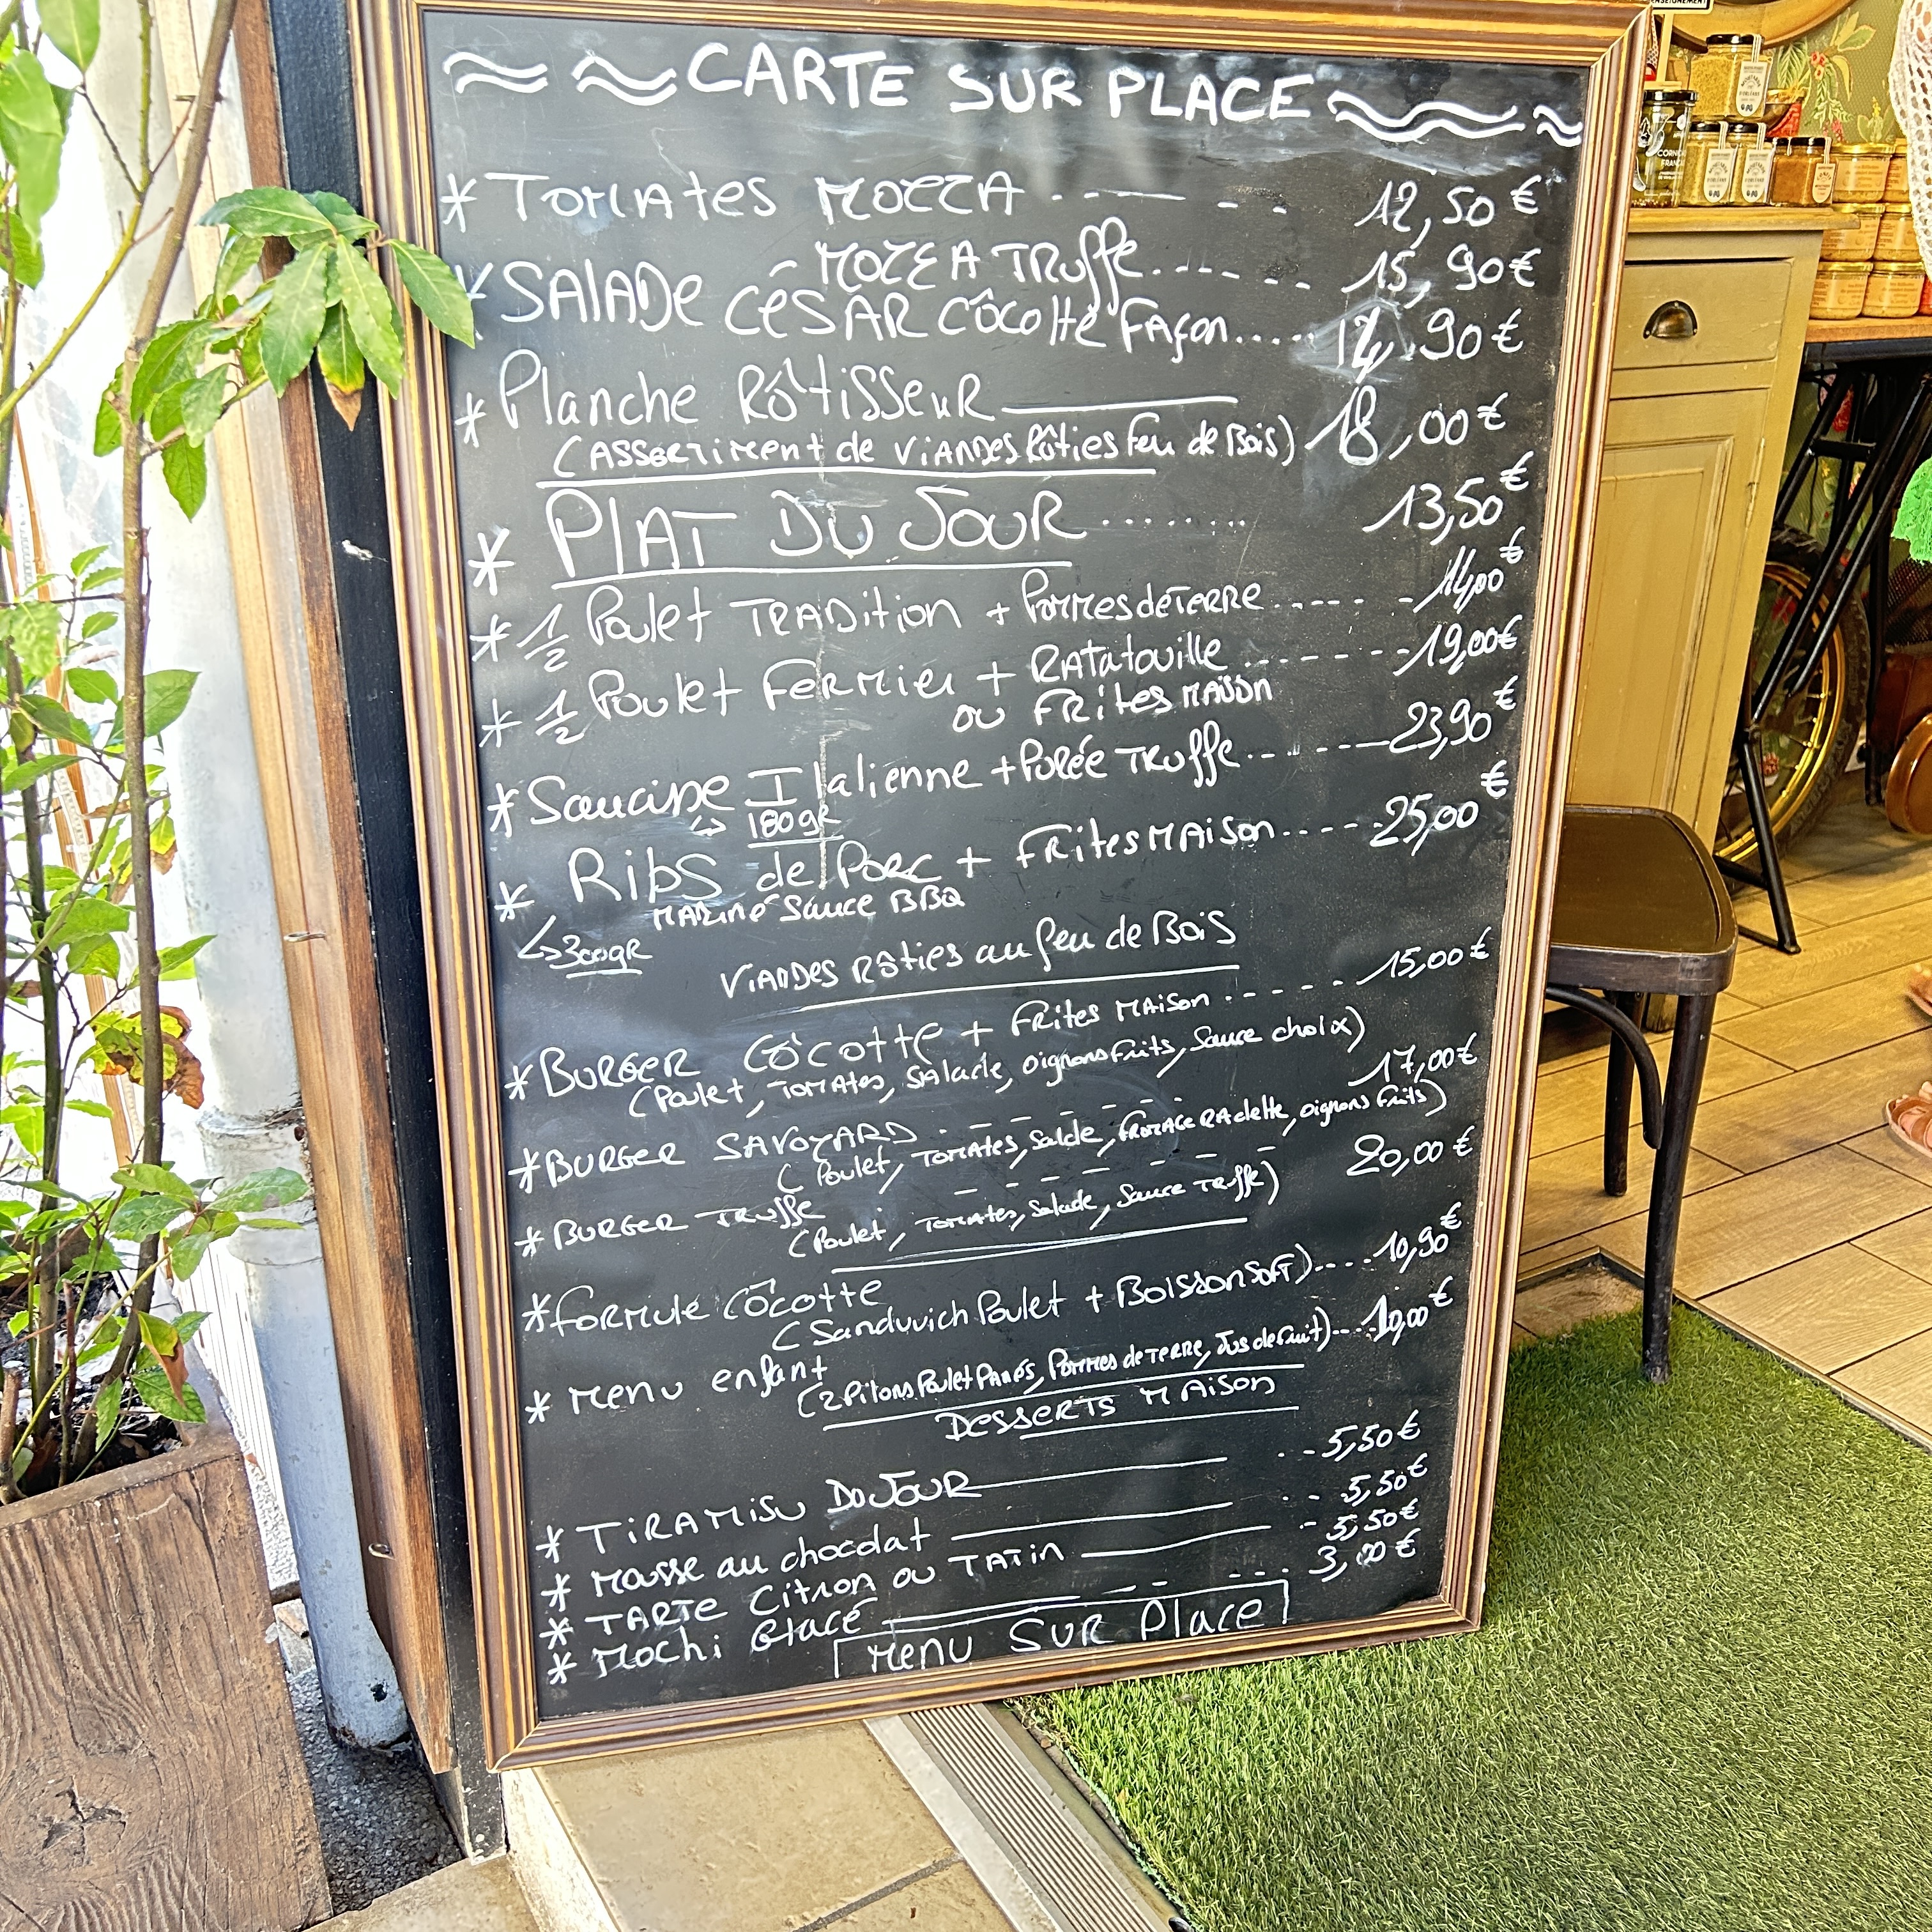 CARTE SUR PLACE
* Tomates MOZZA - - - - - 12,50 €
MOZZA TRuffe.---- -- 15,90 €
* SALADE CÉSAR CÔCOttE Façon..... 14,90 €
* Planche RôtisseuR 18,00 €
(ASSORTIMENT de VIANDES Rôties Feu de Bois)
* PLAT DU JOUR ........ 13,50 €
* 1/2 Poulet TRADition + Pommes de TERRE...... 14,00 €
* 1/2 Poulet FeRMieR + RATATouille....... 19,00 €
ou FRites MAISON
* Saucisse Italienne + Purée TRuffe....... 23,90 €
↳ 180gR
* Ribs de PoRc + FRites MAison....... 25,00 €
MARiné Sauce BBQ
↳ 300gR
VIANDES Rôties au feu de Bois
* BURGER CôCotte + FRites MAison...... 15,00 €
(Poulet, Tomates, SALAde, oignons frits, Sauce choix)
* BURGER SAVOYARD - - - - - - 17,00 €
(Poulet, Tomates, Salde, FROMAGE RAclette, oignons frits)
* BURGER TRuffe - - - - - - 20,00 €
(Poulet, Tomates, Salade, Sauce Truffe)
* foRMULE CôCotte
(Sandwich Poulet + BoissonSOFT).... 10,90 €
* Menu enfant
(2 Pilons Poulet Panés, Pommes de TERRE, Jus de Fruit).... 10,00 €
DesseRTS MAison
* TiRAMiSu DU JOUR 5,50 €
* Mousse au chocolat 5,50 €
* TARTE CitRon ou TATin 5,50 €
* Mochi Glacé 3,00 €
Menu SUR Place